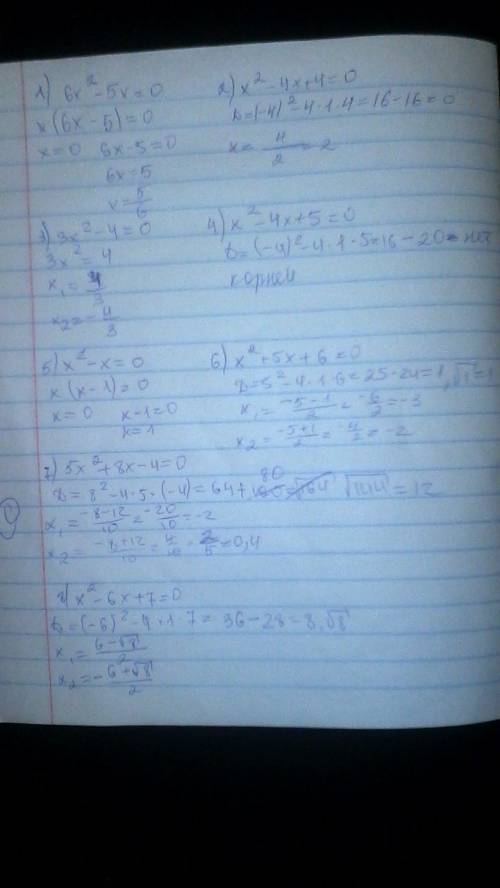 1) 6x² - 5x = 0
x(6x - 5) = 0
x = 0 6x - 5 = 0
6x = 5
x = 5/6
2) x² - 4x + 4 = 0
D = (-4)² - 4·1·4 = 16 - 16 = 0
x = 4/2 = 2
3) 3x² - 4 = 0
3x² = 4
x₁ = 4/3
x₂ = -4/3
4) x² - 4x + 5 = 0
D = (-4)² - 4·1·5 = 16 - 20 = нет
корней
5) x² - x = 0
x(x - 1) = 0
x = 0 x - 1 = 0
x = 1
6) x² + 5x + 6 = 0
D = 5² - 4·1·6 = 25 - 24 = 1, √1 = 1
x₁ = (-5 - 1)/2 = -6/2 = -3
x₂ = (-5 + 1)/2 = -4/2 = -2
7) 5x² + 8x - 4 = 0
D = 8² - 4·5·(-4) = 64 + 80 √144 = 12
x₁ = (-8 - 12)/10 = -20/10 = -2
x₂ = (-8 + 12)/10 = 4/10 = 2/5 = 0,4
8) x² - 6x + 7 = 0
D = (-6)² - 4·1·7 = 36 - 28 = 8, √8
x₁ = (6 - √8)/2
x₂ = (-6 + √8)/2